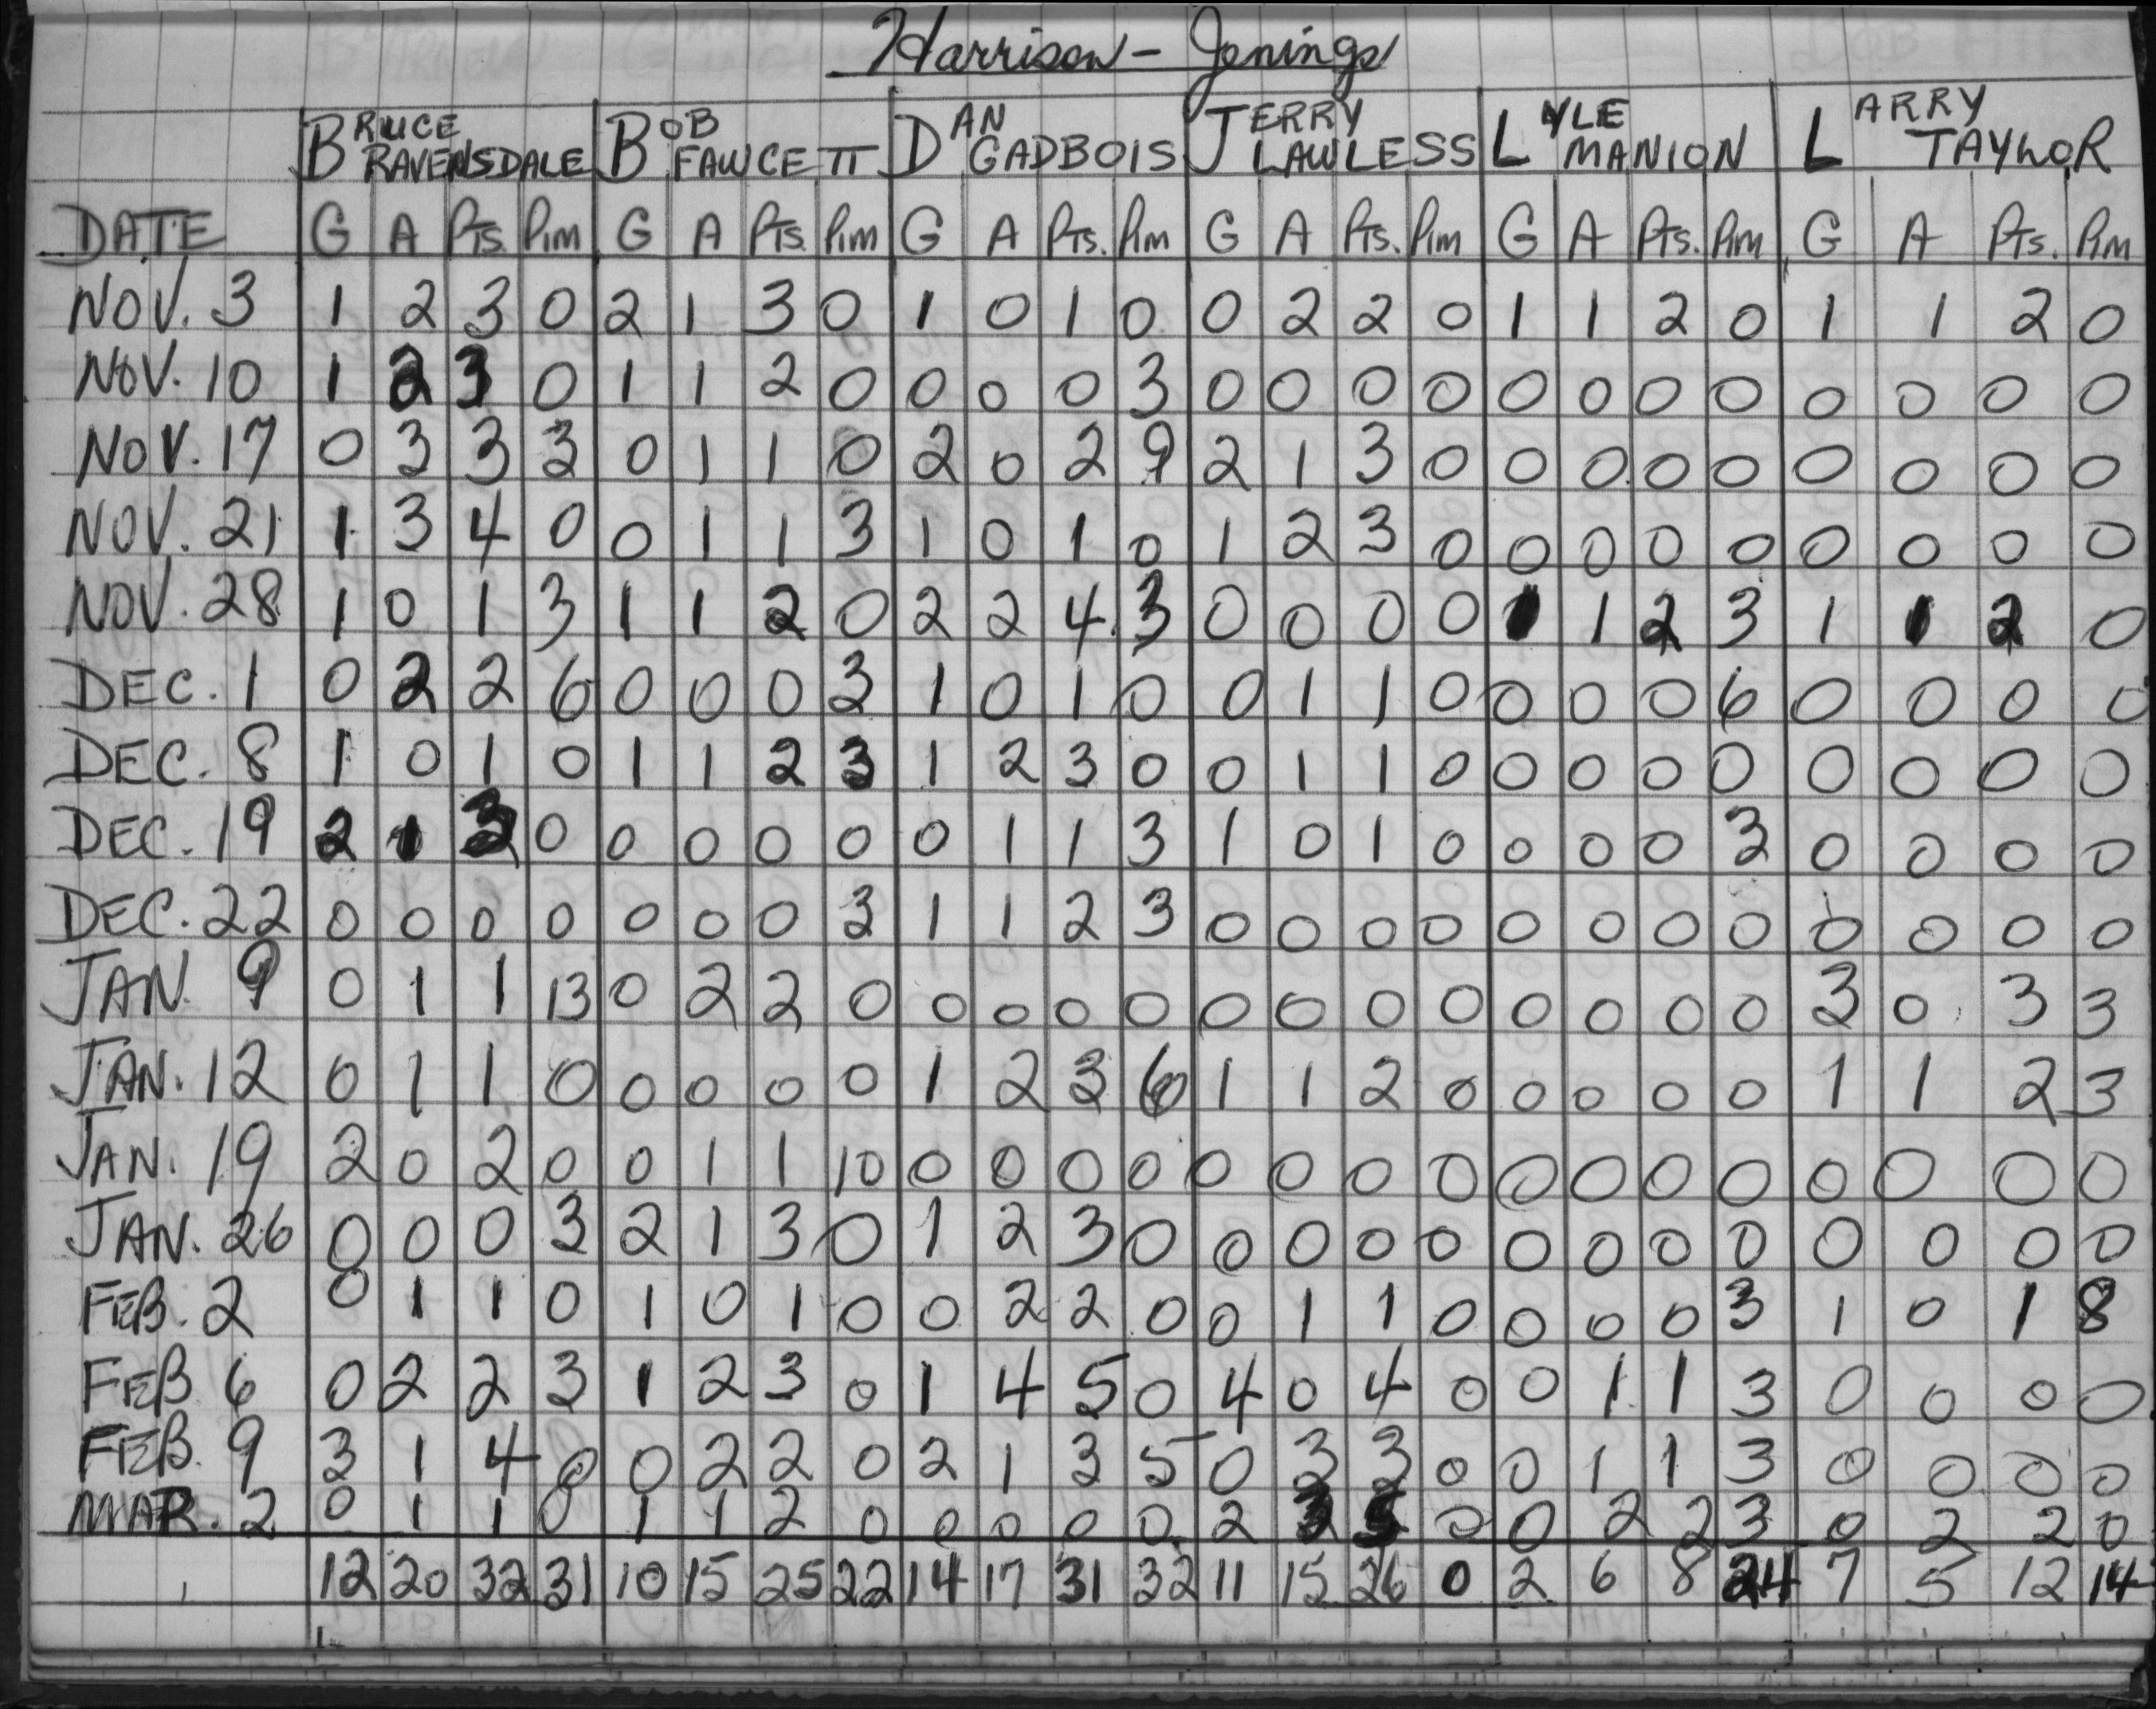 Harrison - Jenings
BRUCE RAVENSDALE BOB FAWCETT DAN GADBOIS JERRY LAWLESS LYLE MANION LARRY TAYLOR
DATE G A Pts. Pim G A Pts. Pim G A Pts. Pim G A Pts. Pim G A Pts. Pim G A Pts. Pim
NOV. 3 1 2 3 0 2 1 3 0 1 0 1 0 0 2 2 0 1 1 2 0 1 1 2 0
NOV. 10 1 2 3 0 1 1 2 0 0 0 0 3 0 0 0 0 0 0 0 0 0 0 0 0
NOV. 17 0 3 3 3 0 1 1 0 2 0 2 9 2 1 3 0 0 0 0 0 0 0 0 0
NOV. 21 1 3 4 0 0 1 1 3 1 0 1 0 1 2 3 0 0 0 0 0 0 0 0 0
NOV. 28 1 0 1 3 1 1 2 0 2 2 4 3 0 0 0 0 1 1 2 3 1 1 2 0
DEC. 1 0 2 2 6 0 0 0 3 1 0 1 0 0 1 1 0 0 0 0 6 0 0 0 0
DEC. 8 1 0 1 0 1 1 2 3 1 2 3 0 0 1 1 0 0 0 0 0 0 0 0 0
DEC. 19 2 1 3 0 0 0 0 0 0 1 1 3 1 0 1 0 0 0 0 3 0 0 0 0
DEC. 22 0 0 0 0 0 0 0 3 1 1 2 3 0 0 0 0 0 0 0 0 0 0 0 0
JAN. 9 0 1 1 13 0 2 2 0 0 0 0 0 0 0 0 0 0 0 0 0 3 0 3 3
JAN. 12 0 1 1 0 0 0 0 0 1 2 3 6 1 1 2 0 0 0 0 0 1 1 2 3
JAN. 19 2 0 2 0 0 1 1 10 0 0 0 0 0 0 0 0 0 0 0 0 0 0 0 0
JAN. 26 0 0 0 3 2 1 3 0 1 2 3 0 0 0 0 0 0 0 0 0 0 0 0 0
FEB. 2 0 1 1 0 1 0 1 0 0 2 2 0 0 1 1 0 0 0 0 3 1 0 1 8
FEB 6 0 2 2 3 1 2 3 0 1 4 5 0 4 0 4 0 0 1 1 3 0 0 0 0
FEB. 9 3 1 4 0 0 2 2 0 2 1 3 5 0 3 3 0 0 1 1 3 0 0 0 0
MAR. 2 0 1 1 0 1 1 2 0 0 0 0 0 2 3 5 0 0 2 2 3 0 2 2 0
12 20 32 31 10 15 25 22 14 17 31 32 11 15 26 0 2 6 8 24 7 5 12 14